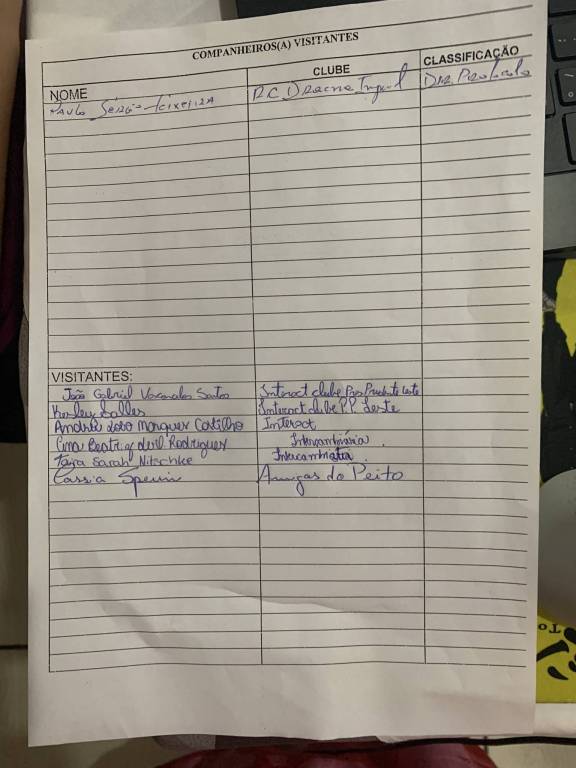 COMPANHEIROS(A) VISITANTES
NOME CLUBE CLASSIFICAÇÃO
Paulo Sérgio Teixeira RC Dracena
VISITANTES:
João Gabriel Santos Interact clube Pres Prudente Leste
Kesley Salles Interact clube P.P. Leste
André Lobo Marques Castilho Interact
Beatriz Rodrigues Intercambiária.
Sarah Nitschke Intercambiária.
Cassia Amigas do Peito